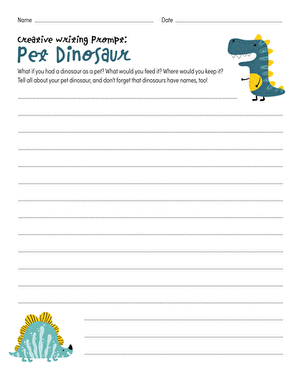 Name Date
Creative Writing Prompt:
Pet Dinosaur
What if you had a dinosaur as a pet? What would you feed it? Where would you keep it?
Tell all about your pet dinosaur, and don't forget that dinosaurs have names, too!